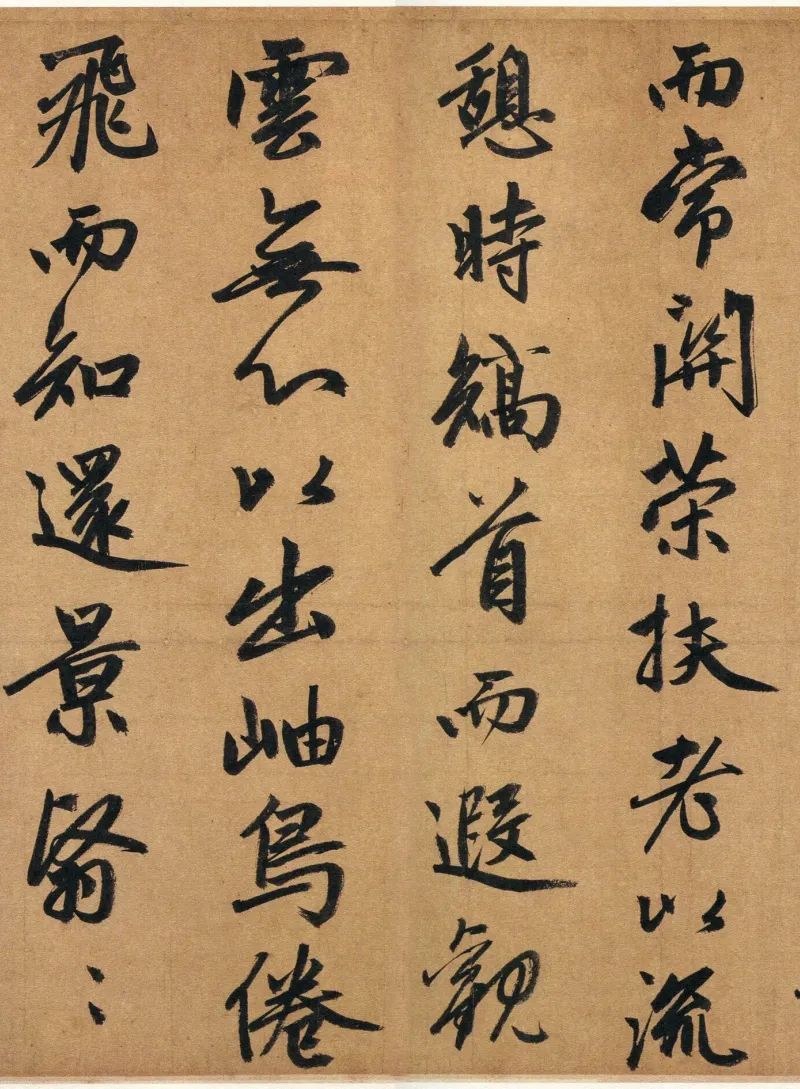 而常開榮扶老以流
憩時矯首而遐觀
雲無心以出岫鳥倦
飛而知還景翳〻